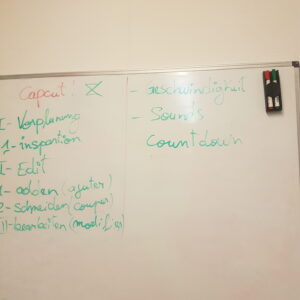 Capcut!
I- Vorplanung
1- inspartion
II- Edit
1- adden (ajuter)
2- schneiden (couper)
III- bearbeiten (modifier)
- geschwindigkeit
- Sounds
Countdown